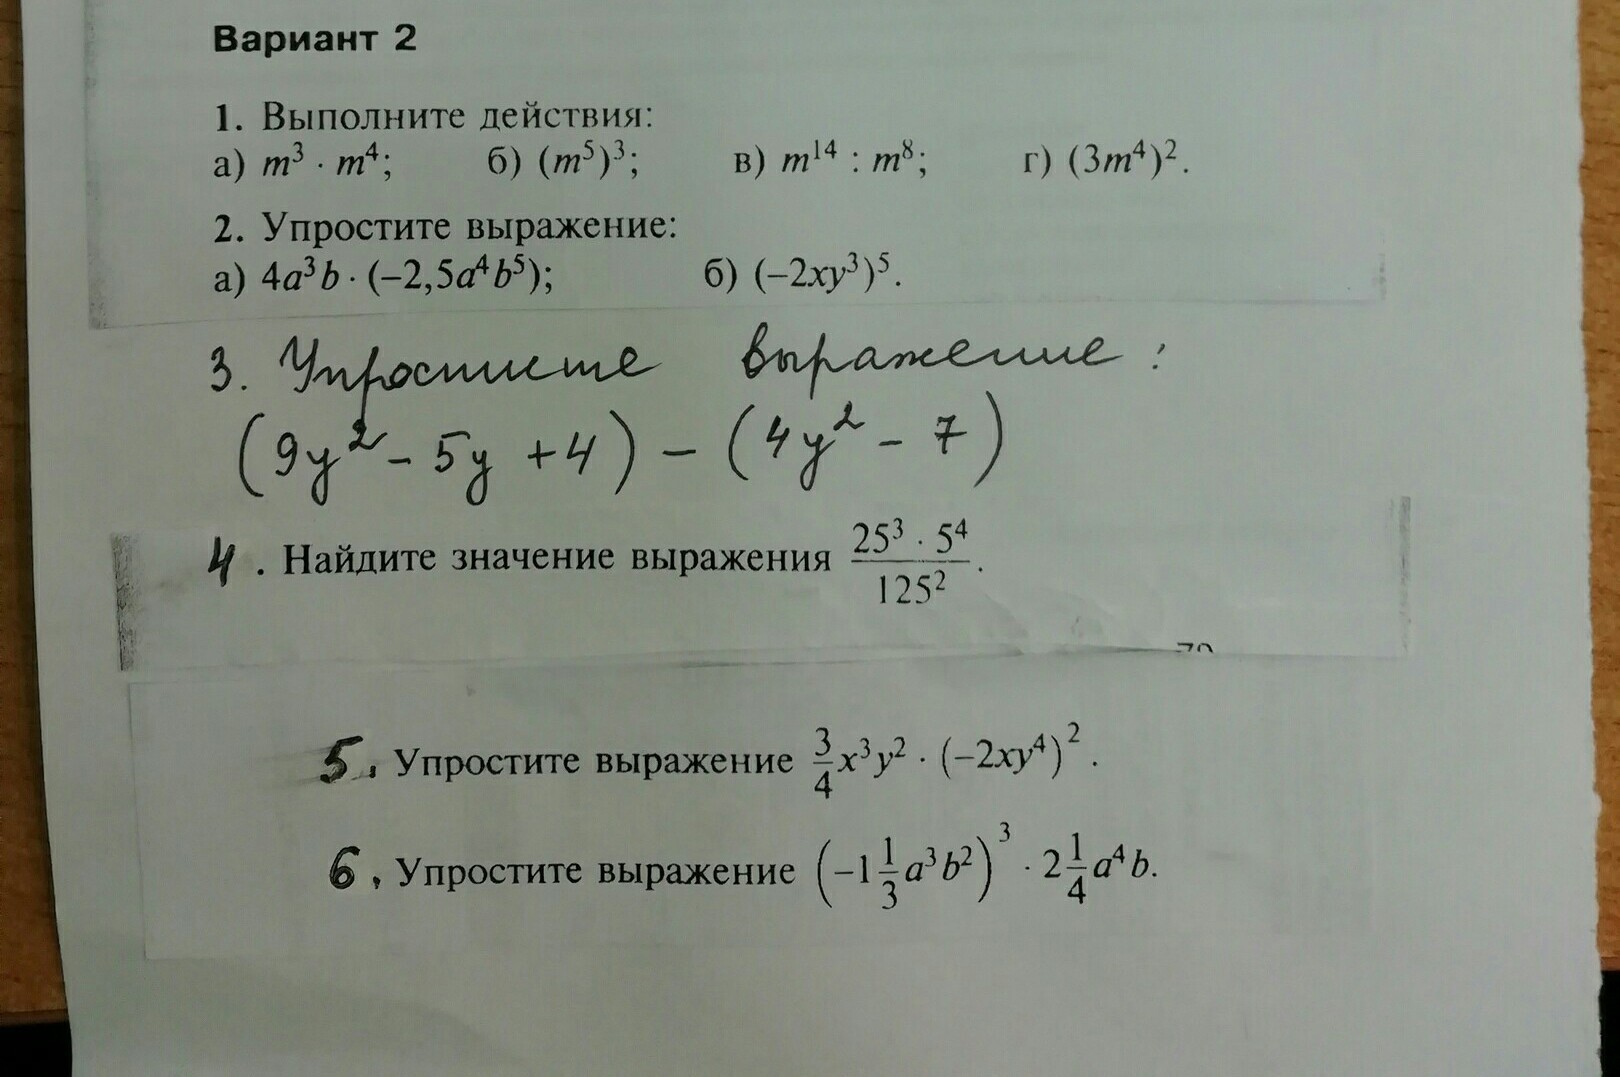 Вариант 2
1. Выполните действия:
а) m³ · m⁴; б) (m⁵)³; в) m¹⁴ : m⁸; г) (3m⁴)².
2. Упростите выражение:
а) 4a³b · (−2,5a⁴b⁵); б) (−2xy³)⁵.
3. Упростите выражение:
(9y² − 5y + 4) − (4y² − 7)
4. Найдите значение выражения \frac{25³ · 5⁴}{125²}.
5, Упростите выражение \frac{3}{4}x³y² · (−2xy⁴)².
6, Упростите выражение (−1\frac{1}{3}a³b²)³ · 2\frac{1}{4}a⁴b.